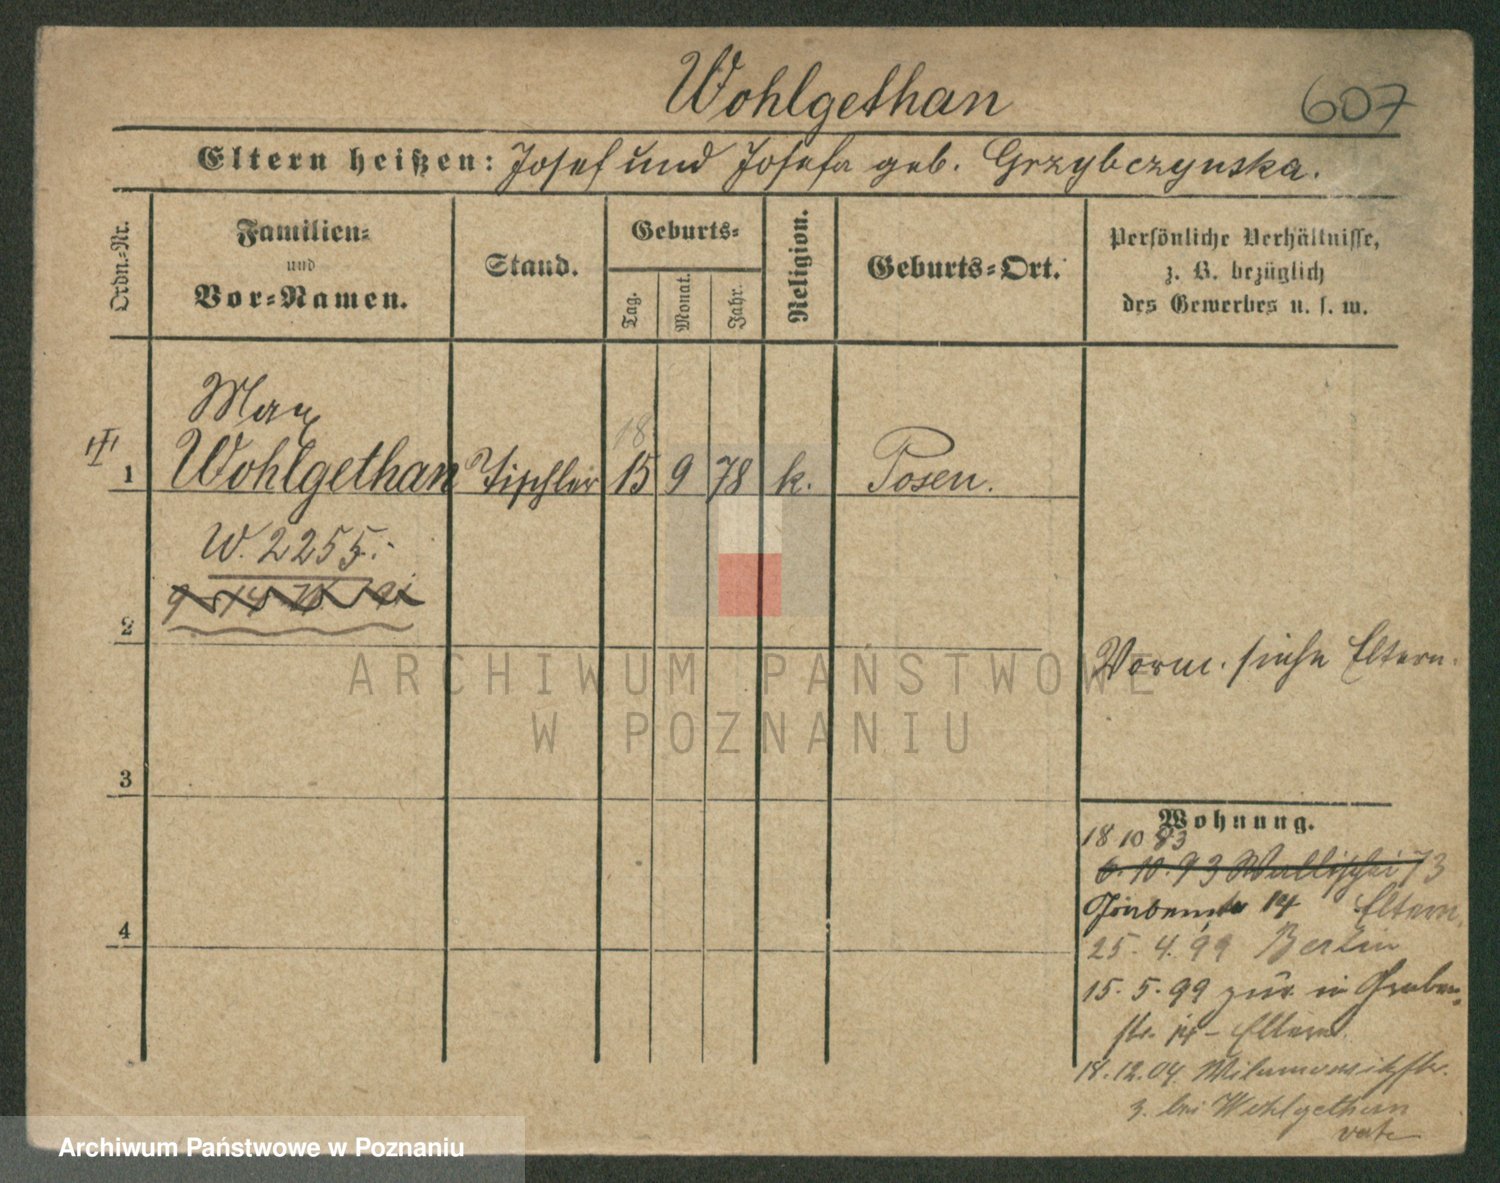 Wohlgethan
607
Eltern heißen: Josef und Josefa geb. Grzybczynska.
Ordn.-Nr.
Familien-
und
Vor-Namen.
Stand.
Geburts-
Tag.
Monat.
Jahr.
Religion.
Geburts-Ort.
Persönliche Verhältnisse,
z. B. bezüglich
des Gewerbes u. s. w.
Max
18
1 Wohlgethan Tischler 15 9 78 k. Posen.
W. 2255.
2
Vorm. siehe Eltern.
ARCHIWUM PAŃSTWOWE
W POZNANIU
3
Wohnung.
18 10 93
6. 10. 93 Wallischei 73
14 Eltern.
4
25. 4. 99 Berlin
15. 5. 99 zur. in Graben-
str. 14 - Eltern.
18. 12. 04. Wilamowitzstr.
3. bei Wohlgethan
Archiwum Państwowe w Poznaniu